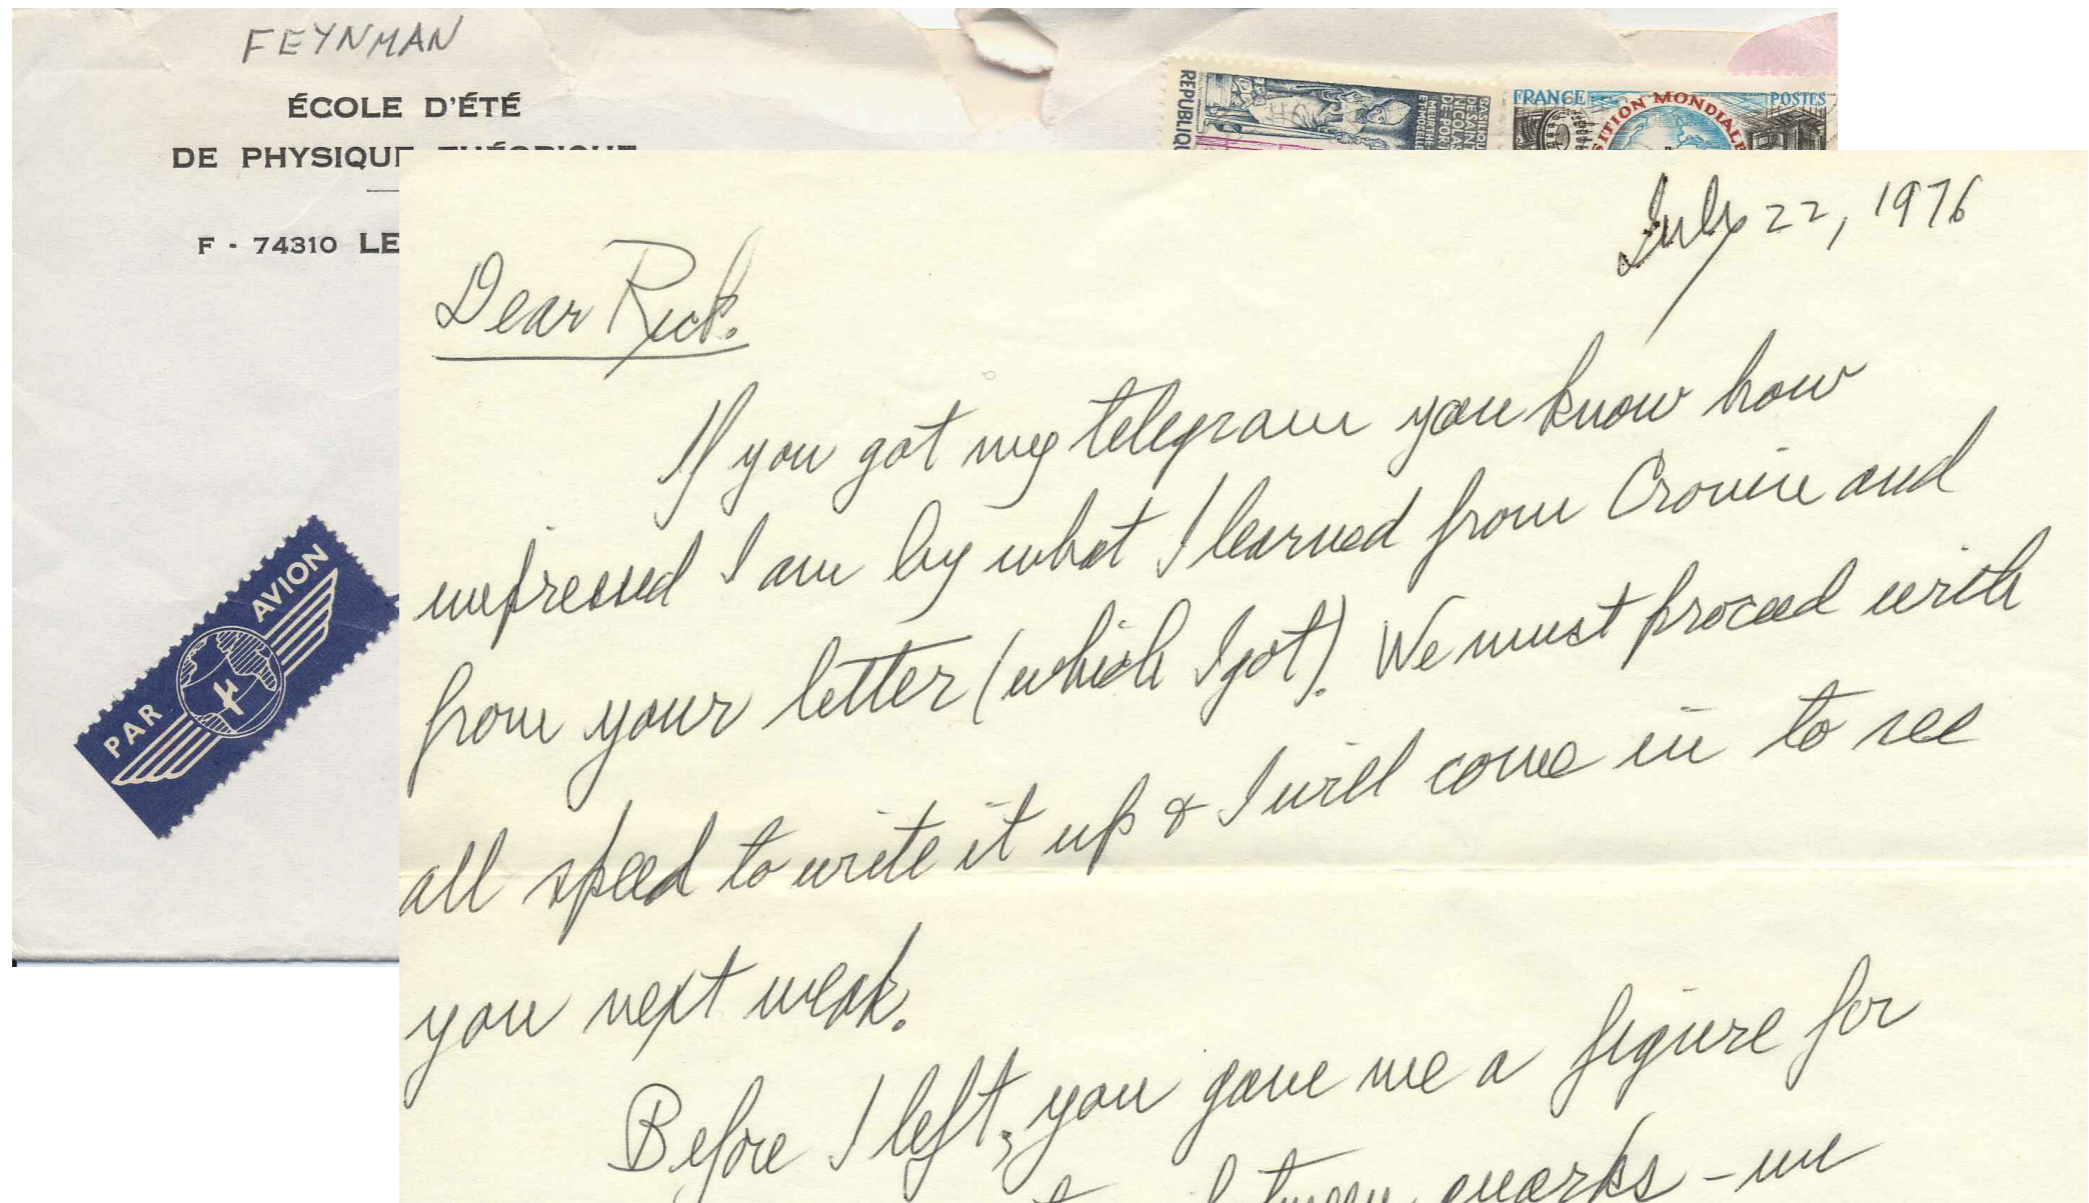 FEYNMAN
ÉCOLE D'ÉTÉ
DE PHYSIQUE THÉORIQUE
F - 74310 LE
PAR AVION
RÉPUBLIQU
FRANCE POSTES
SITION MONDIALE
July 22, 1976
Dear Rick.
If you got my telegram you know how
impressed I am by what I learned from Cronin and
from your letter (which I got). We must proceed with
all speed to write it up & I will come in to see
you next week.
Before I left, you gave me a figure for
between quarks - we